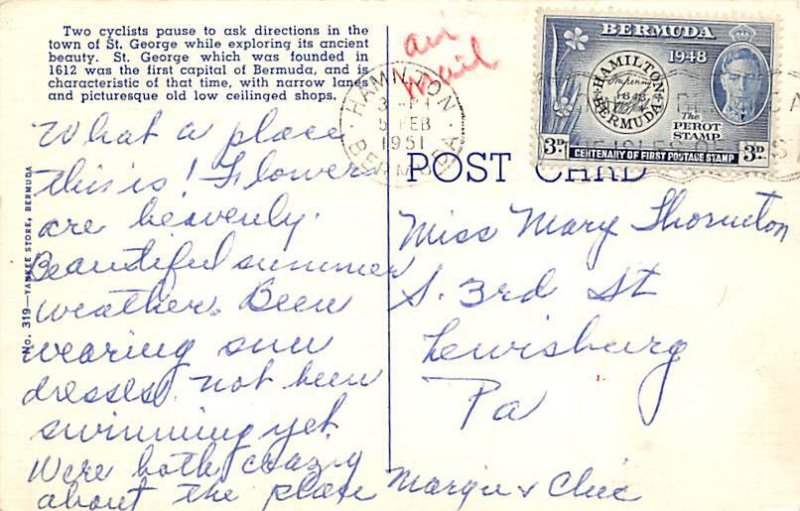 Two cyclists pause to ask directions in the
town of St. George while exploring its ancient
beauty. St. George which was founded in
1612 was the first capital of Bermuda, and is
characteristic of that time, with narrow lanes
and picturesque old low ceilinged shops.
No. 319—YANKEE STORE, BERMUDA
air
mail
HAMILTON
5 FEB
1951
BERMUDA
BERMUDA
1948
HAMILTON
BERMUDA
The
PEROT
STAMP
3D CENTENARY OF FIRST POSTAGE STAMP 3D
POST CARD
What a place
this is! Flowers
are heavenly.
Beautiful summer
weather. Been
wearing sun
dresses. not been
swimming yet.
Were both crazy
about the place
Margie &
Miss Mary Thornton
S. 3rd St
Lewisburg
Pa